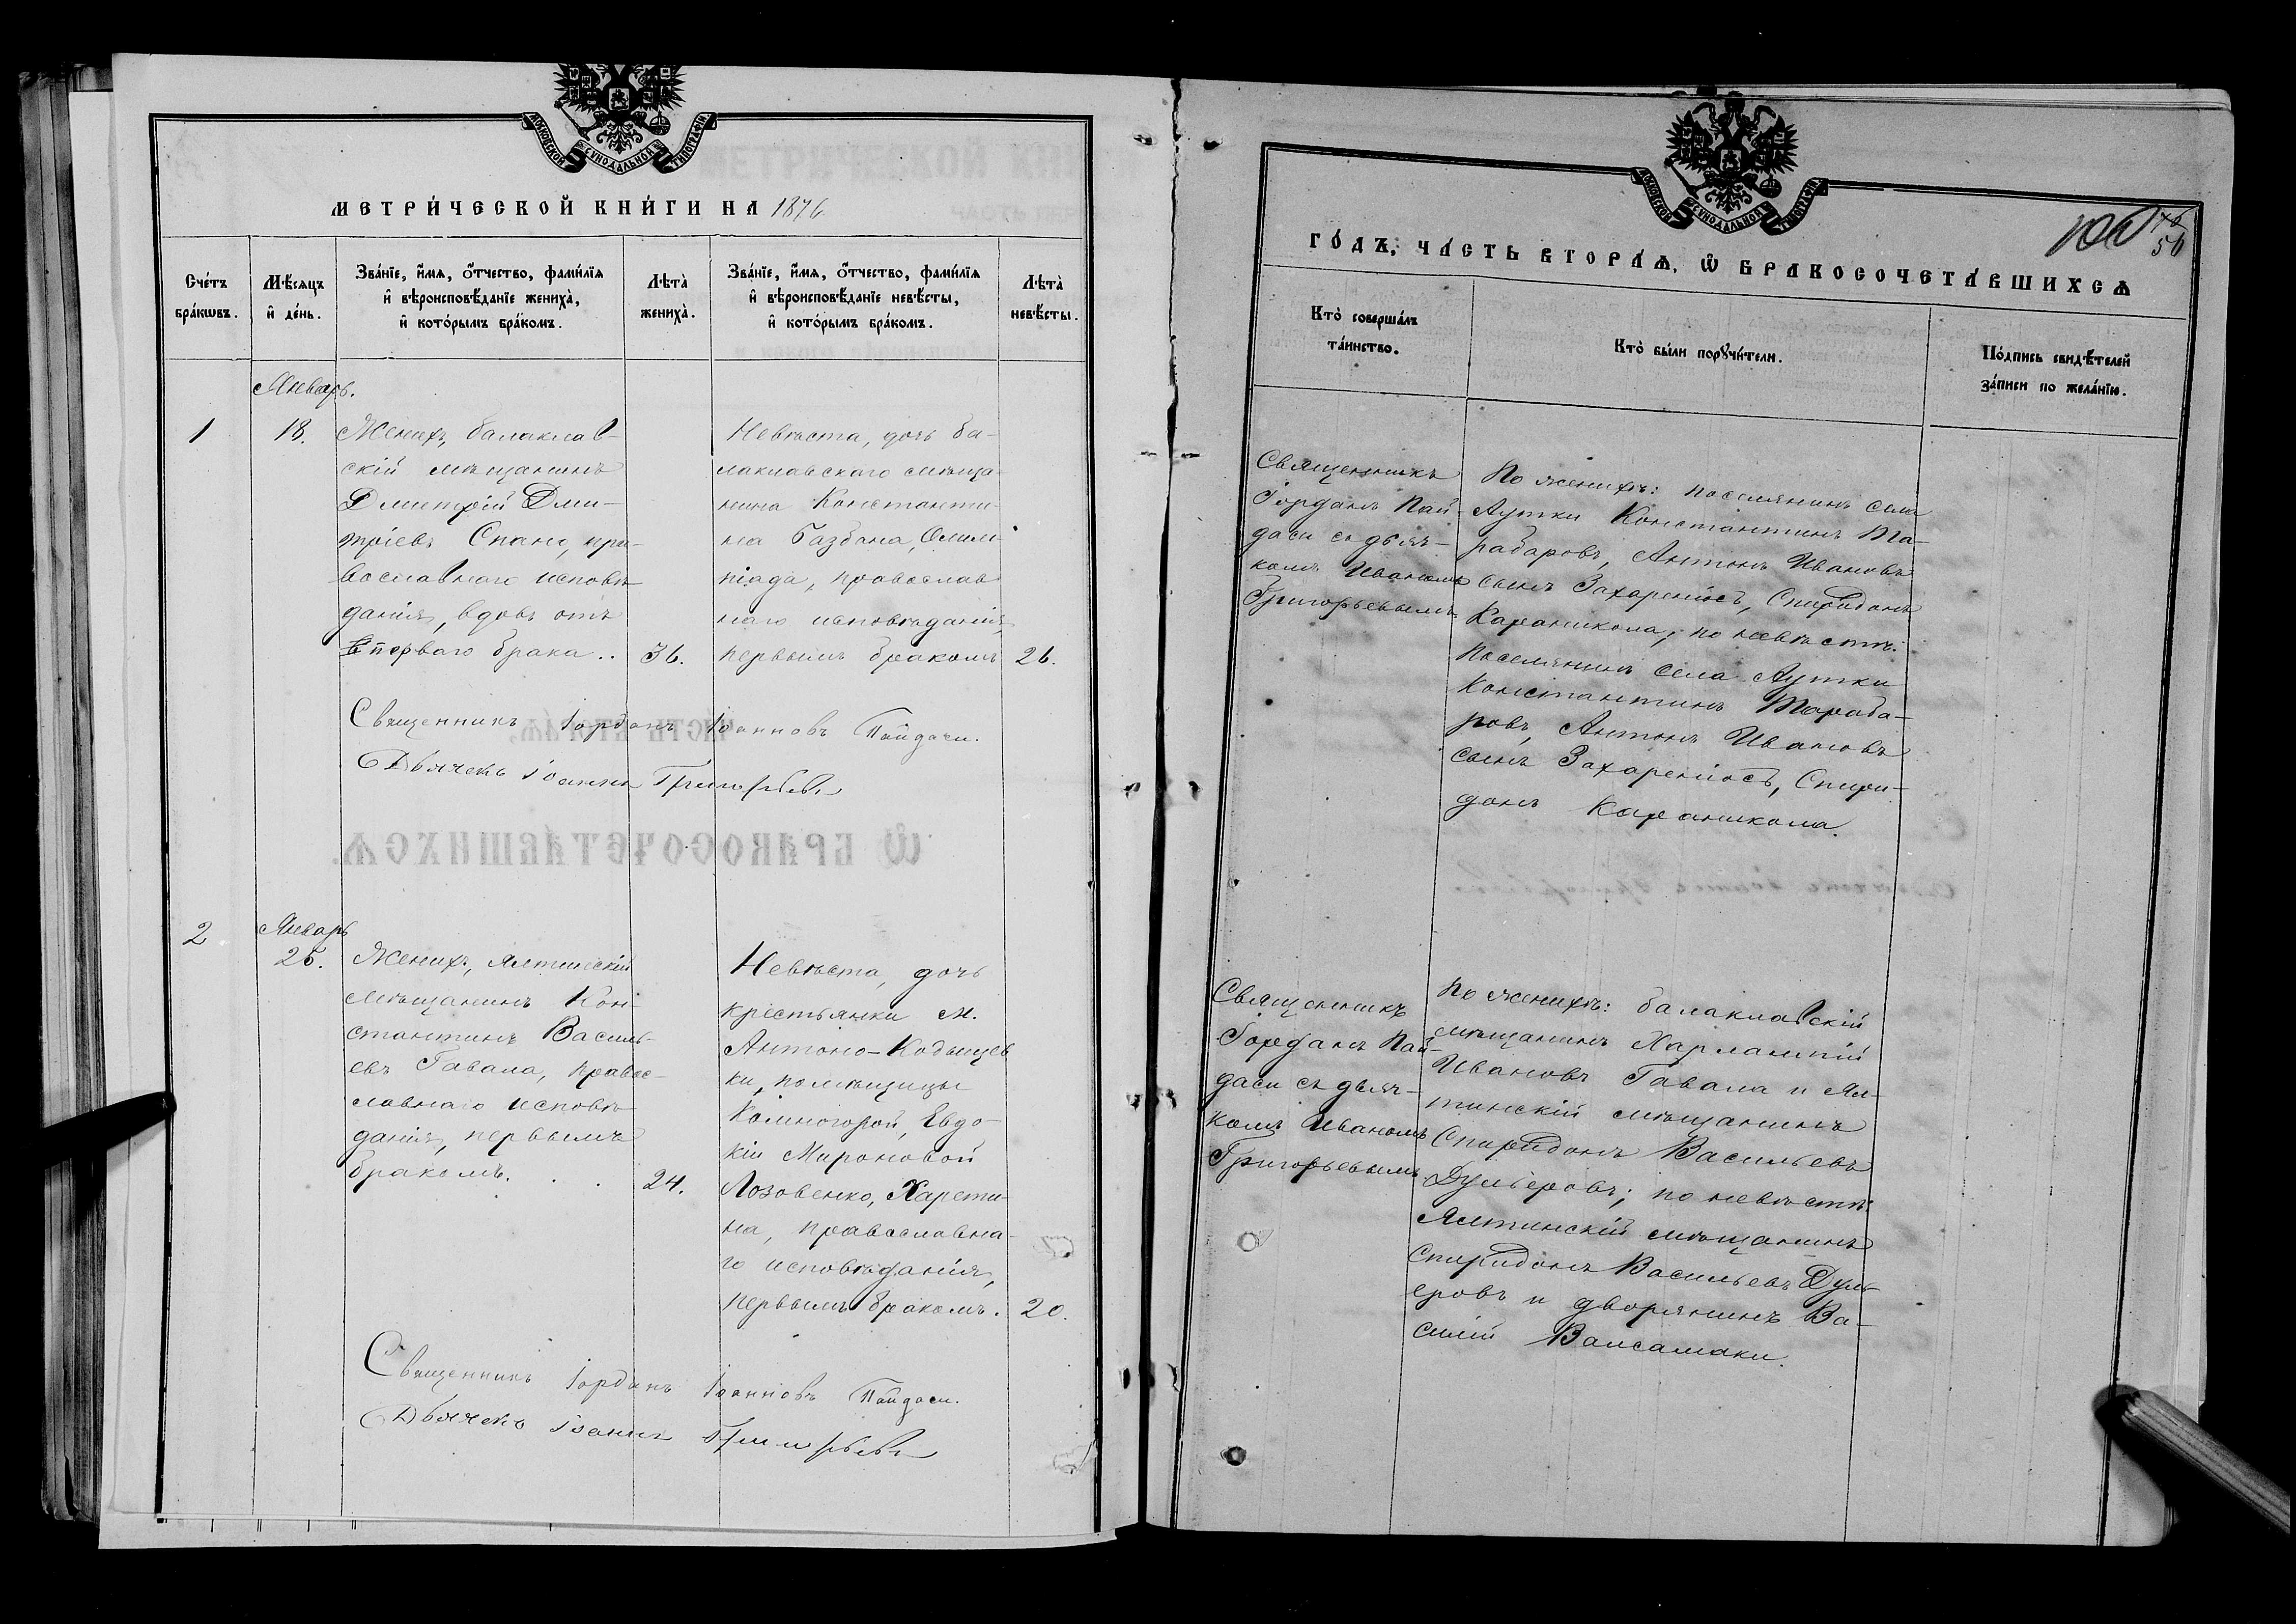 МОСКОВСКОЙ СѴНОДАЛЬНОЙ ТИПОГРАФІИ
МЕТРИ́ЧЕСКОЙ КНИ́ГИ НА 1876
Сче́тъ
бра́кѡвъ.
Мѣ́сяцъ
и҆ де́нь.
Зва́нїе, и҆́мѧ, ѻ҆́тчество, фами́лїѧ
и҆ вѣроисповѣ́данїе жениха̀,
и҆ кото́рымъ бра́комъ.
Лѣта̀
жениха̀.
Зва́нїе, и҆́мѧ, ѻ҆́тчество, фами́лїѧ
и҆ вѣроисповѣ́данїе невѣ́сты,
и҆ кото́рымъ бра́комъ.
Лѣта̀
невѣ́сты.
Январь.
1
18.
Женихъ, балаклав-
скій мѣщанинъ
Дмитрій Дми-
тріевъ Спано, пра-
вославнаго исповѣ-
данія, вдовъ отъ
перваго брака..
36.
Невѣста, дочь ба-
лаклавскаго мѣща-
нина Константи-
на Базбана, Олим-
піада, православ
наго исповѣданія,
первымъ бракомъ
26.
Священникъ Іорданъ Іоанновъ Пайдаси.
Дьячекъ Іоаннъ Григорьевъ
2
Январь
25.
Женихъ, Ялтинскій
мѣщанинъ Кон-
стантинъ Василь-
евъ Гавала, правос-
лавнаго исповѣ-
данія, первымъ
бракомъ. . .
24.
Невѣста, дочь
крестьянки м.
Антоно-Кодынцев
ки, помѣщицы
Евдо-
кіи Мироновой
Лозовенко, Харети-
на, православна-
го исповѣданія,
первымъ бракомъ.
20.
Священникъ Іорданъ Іоанновъ Пайдаси.
Дьячекъ Іоаннъ Григорьевъ
МОСКОВСКОЙ СѴНОДАЛЬНОЙ ТИПОГРАФІИ
ГО́ДЪ, ЧА́СТЬ ВТОРА́Ѧ, Ѽ БРАКОСОЧЕТА́ВШИХСѦ
Кто̀ соверша́лъ
та́инство.
Кто̀ бы́ли порꙋчи́тели.
По́дпись свидѣ́телей
за́писи по жела́нїю.
Священникъ
Іорданъ Пай-
даси съ дьяч-
комъ Иваномъ
Григорьевымъ
По женихѣ: поселянинъ села
Аутки Константинъ Та-
рабаровъ, Антонъ Ивановъ
сынъ Захареносъ, Спиридонъ
Караникола; по невѣстѣ:
поселянинъ села Аутки
Константинъ Тараба-
ровъ, Антонъ Ивановъ
сынъ Захареносъ, Спири-
донъ Караникола.
Священникъ
Іорданъ Пай-
даси съ дьяч-
комъ Иваномъ
Григорьевымъ
По женихѣ: балаклавскій
мѣщанинъ Харлампій
Ивановъ Гавала и Ял-
тинскій мѣщанинъ
Спиридонъ Васильевъ
Дульеровъ; по невѣстѣ
Ялтинскій мѣщанинъ
Спиридонъ Васильевъ Дуль-
еровъ и дворянинъ Ва-
силій Валсамаки.